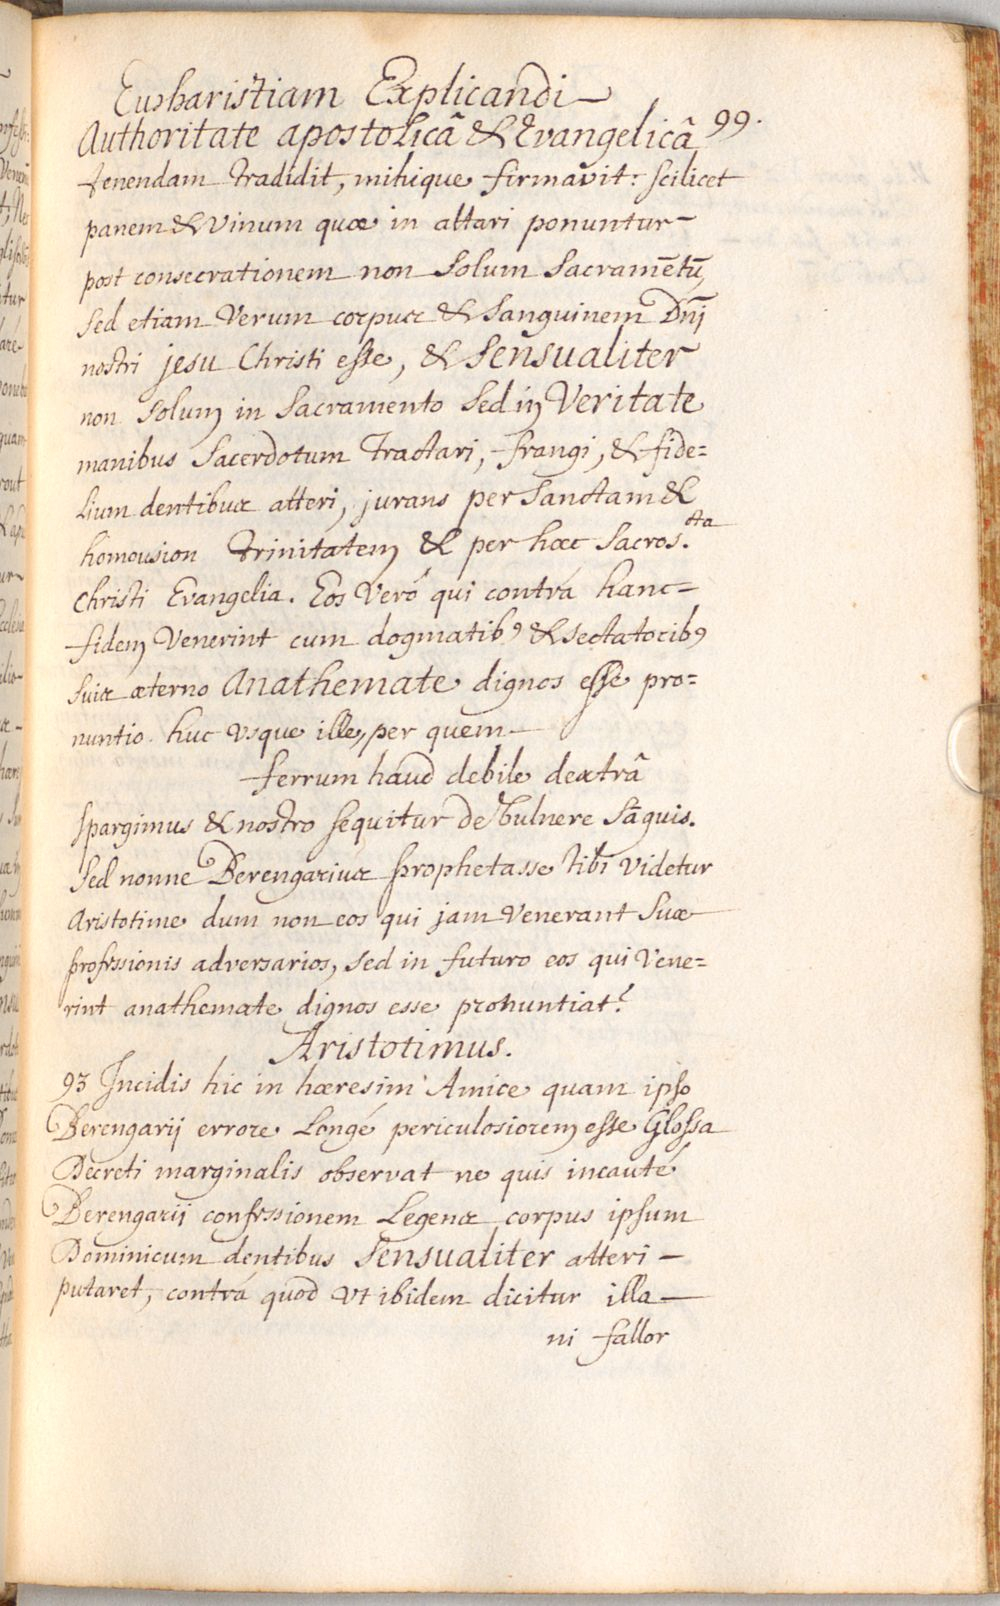 Eucharistiam Explicandi
99.
Authoritate apostolicâ & Evangelicâ
tenendam tradidit, mihique firmavit: scilicet
panem & vinum quæ in altari ponuntur
post consecrationem non solum Sacramētū,
sed etiam Verum corpus & Sanguinem Dn̄j
nostri jesu Christi esse, & Sensualiter
non solum in Sacramento sed in Veritate
manibus Sacerdotum tractari, frangi, & fide=
lium dentibus atteri, jurans per Sanctam &
homousion Trinitatem & per hæc Sacros.cta
Christi Evangelia. Eos Veró qui contrá hanc=
fidem Venerint cum dogmatib9 & sectatorib9
suis æterno Anathemate dignos esse pro=
nuntio. huc Vsque ille, per quem
ferrum haud debile dextrâ
spargimus & nostro sequitur de Vulnere Sāguis.
Sed nonne Berengarius prophetasse tibi Videtur
Aristotime dum non eos qui jam Venerant Suæ
professionis adversarios, sed in futuro eos qui Vene=
rint anathemate dignos esse pronuntiat?
Aristotimus.
93 Incidis hic in hæresim Amice quam ipso
Berengarij errore Longé periculosiorem esse Glossa
Decreti marginalis observat ne quis incauté
Berengarij confessionem Legens corpus ipsum
Dominicum dentibus Sensualiter atteri
putaret, contrá quod Vt ibidem dicitur illa
ni fallor